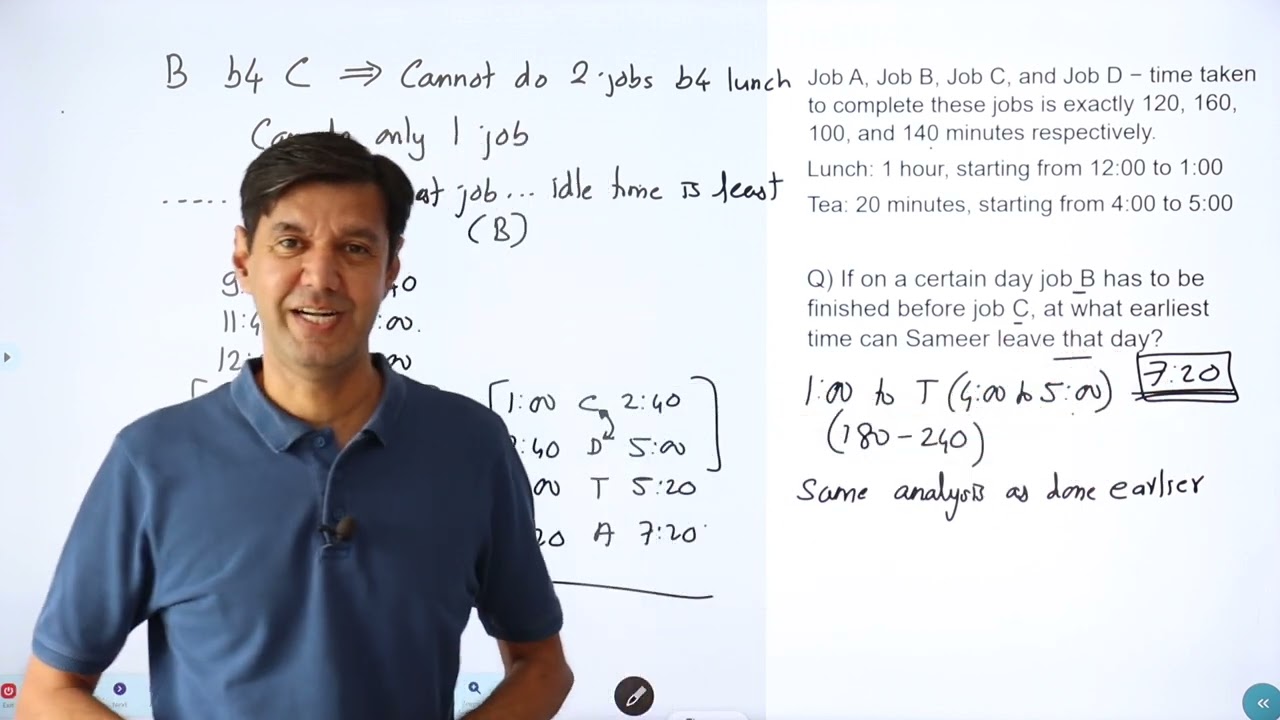 B b4 C ⇒ Cannot do 2 jobs b4 lunch
only 1 job
..... job... idle time is least
(B)
1:00 C 2:40
D 5:00
T 5:20
A 7:20
Job A, Job B, Job C, and Job D – time taken
to complete these jobs is exactly 120, 160,
100, and 140 minutes respectively.
Lunch: 1 hour, starting from 12:00 to 1:00
Tea: 20 minutes, starting from 4:00 to 5:00
Q) If on a certain day job B has to be
finished before job C, at what earliest
time can Sameer leave that day?
1:00 to T (4:00 to 5:00) 7:20
(180-240)
Same analysis as done earlier